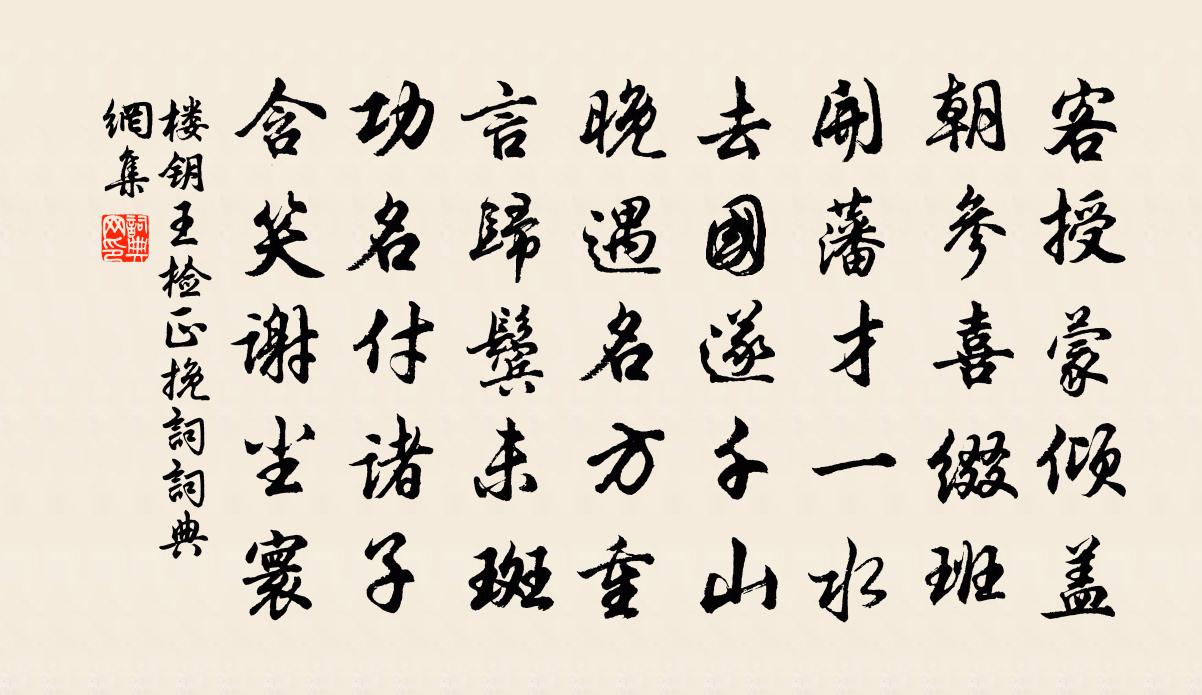 客授蒙倾盖
朝參喜缀班
開藩才一水
去國遂千山
晚遇名方重
言歸鬓未斑
功名付诸子
含笑谢尘寰
楼钥王检正挽詞詞典
網集
詞典
网印